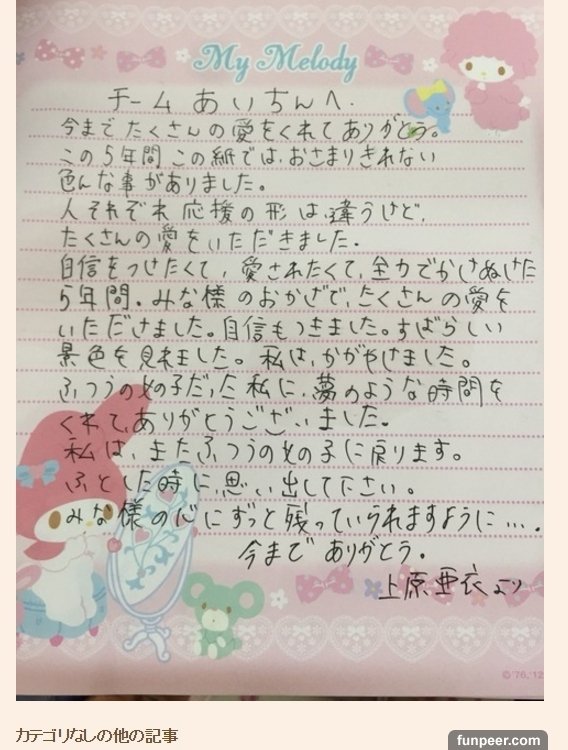 My Melody
チームあいちんへ.
今までたくさんの愛をくれてありがとう。
この5年間この紙では、おさまりきれない
色んな事がありました。
人それぞれ応援の形は違うけど、
たくさんの愛をいただきました.
自信をつけたくて、愛されたくて、全力でかけぬけた
5年間.みな様のおかげで、たくさんの愛を
いただけました。自信もつきました。すばらしい
景色を見れました。私は、かがやけました。
ふつうの女の子だった私に、夢のような時間を
くれて、ありがとうございました。
私は、またふつうの女の子に戻ります。
ふとした時に、思い出して下さい。
みな様の心にずっと残っていられますように….
今までありがとう.
上原亜衣より
©'76,'12
カテゴリなしの他の記事
funpeer.com